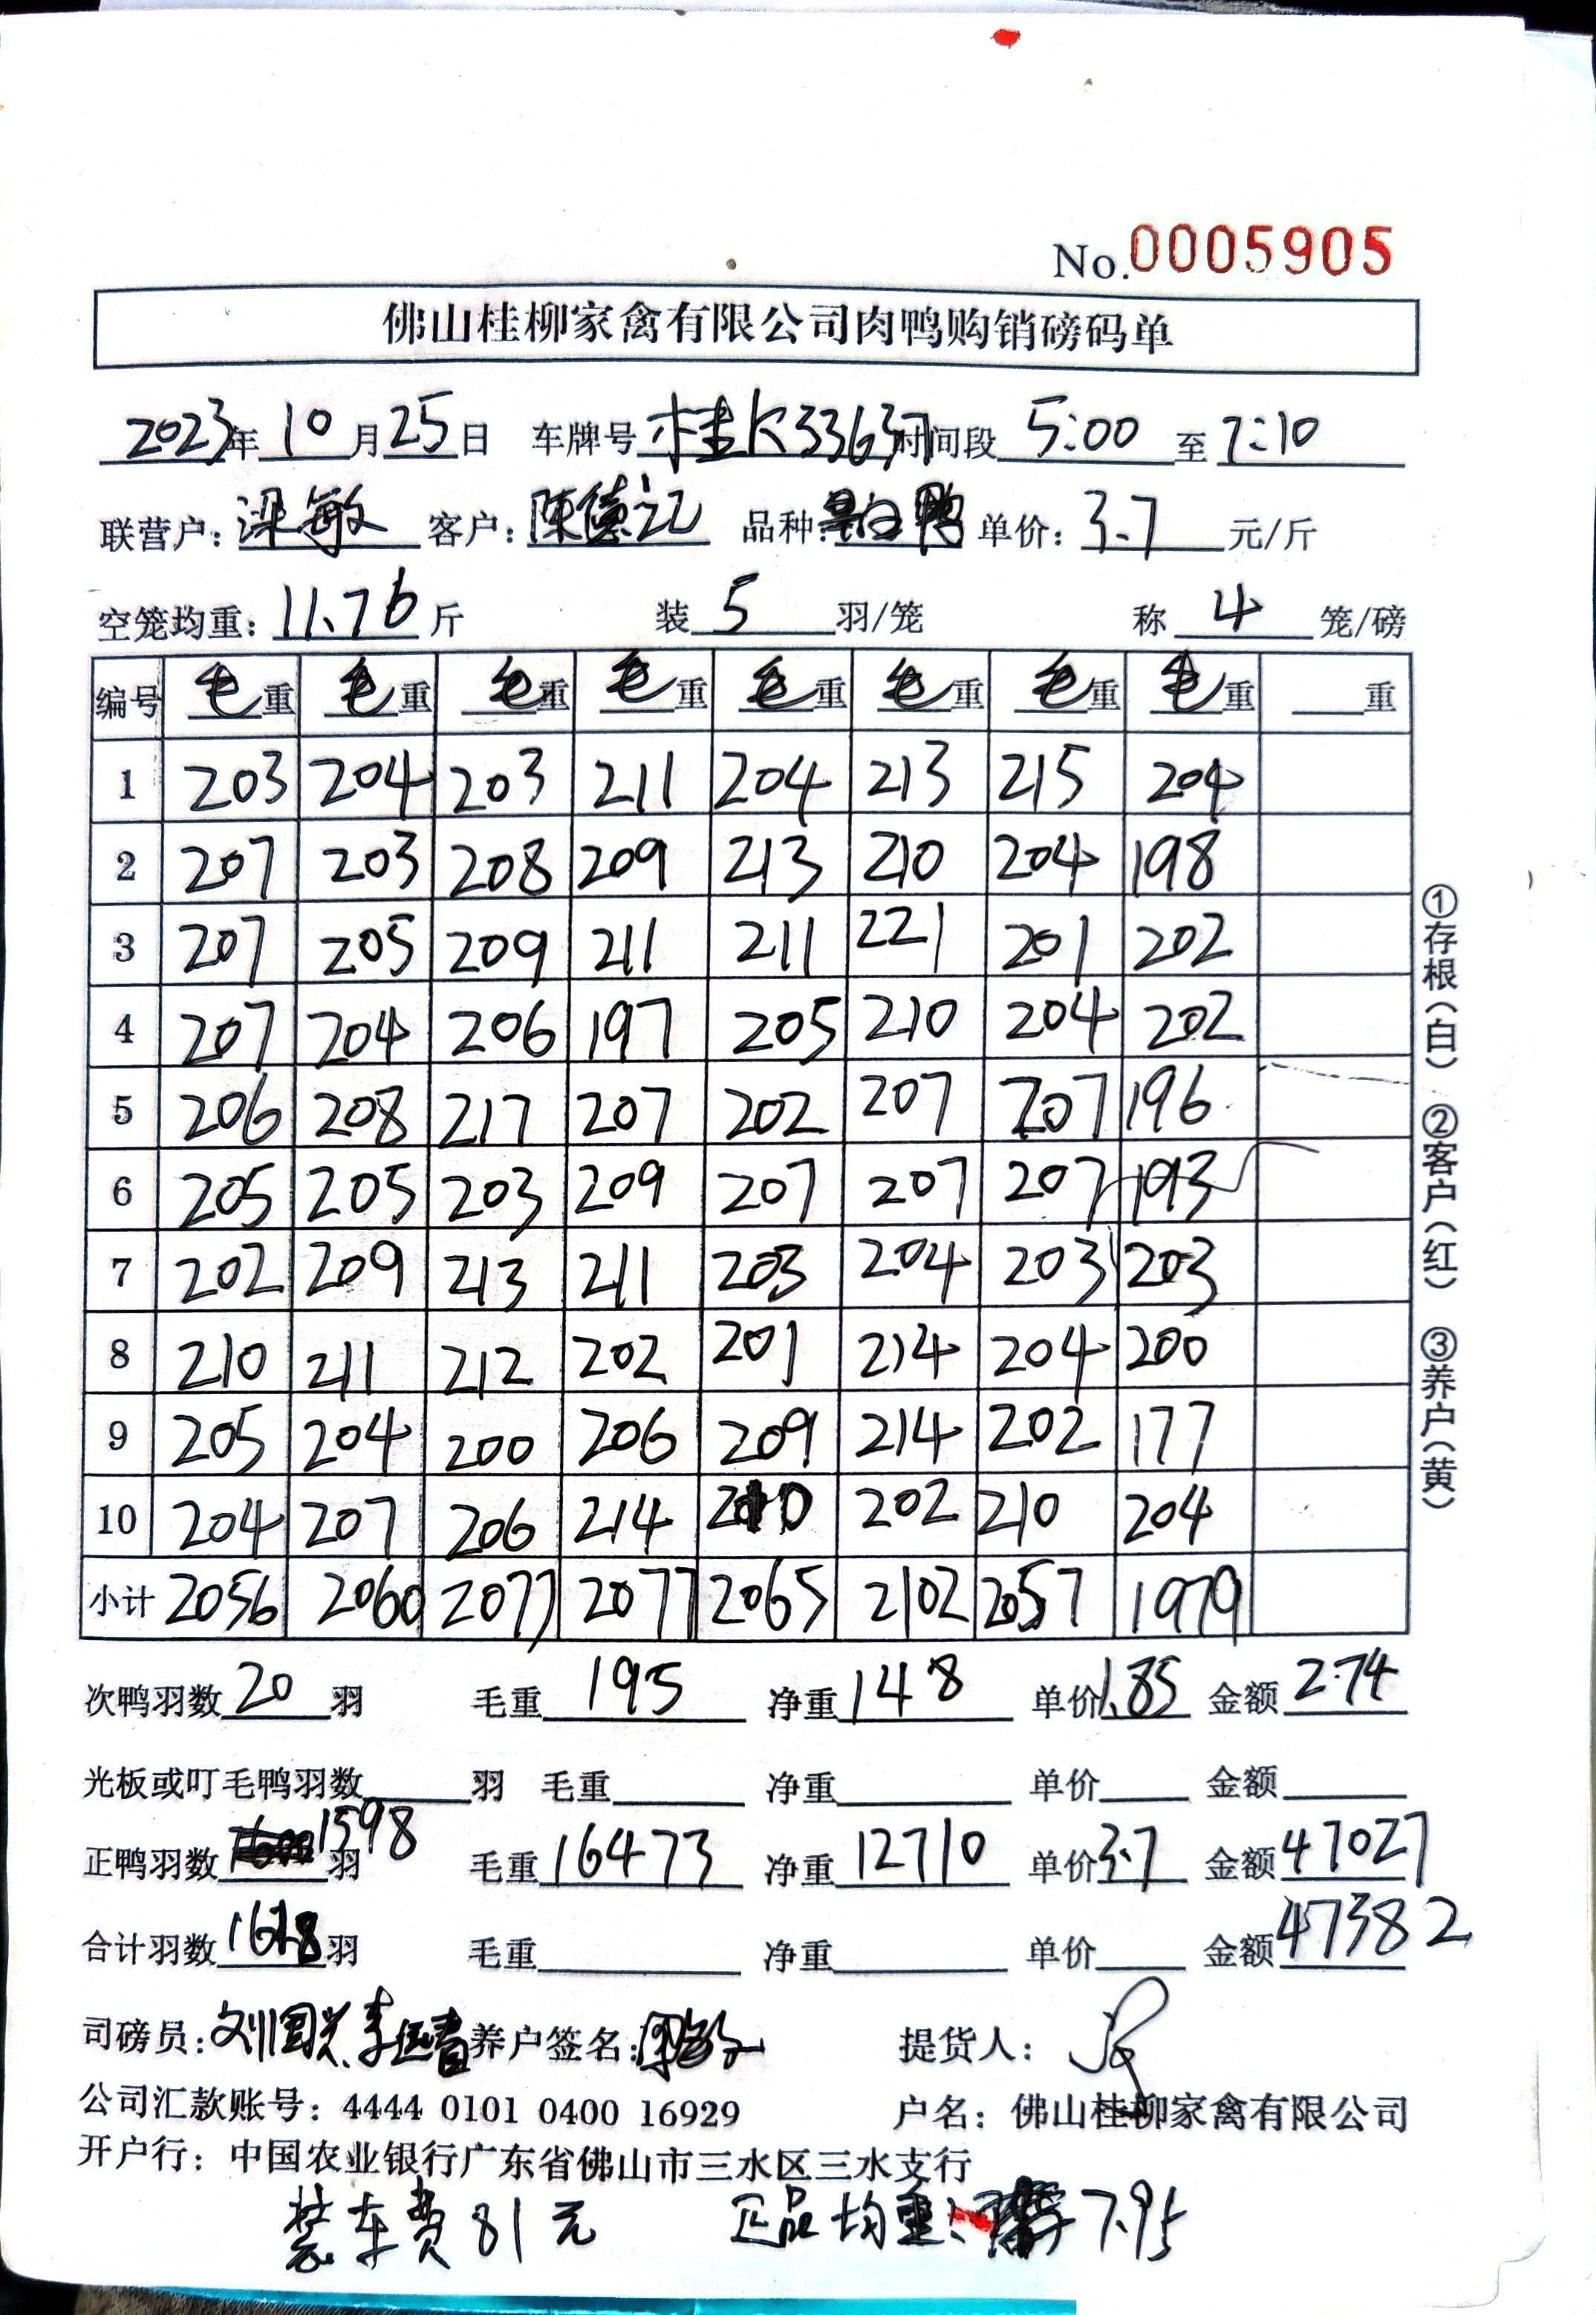 No.0005905
佛山桂柳家禽有限公司肉鸭购销磅码单
2023年10月25日 车牌号桂K33637时间段5:00至7:10
联营户：梁敏 客户：陈德记 品种：白鸭 单价：3.7元/斤
空笼均重：11.76斤 装5羽/笼 称4笼/磅
编号 毛重 毛重 毛重 毛重 毛重 毛重 毛重 毛重 重
1 203 204 203 211 204 213 215 204
2 207 203 208 209 213 210 204 198
3 207 205 209 211 211 221 201 202
4 207 204 206 197 205 210 204 202
5 206 208 217 207 202 207 207 196
6 205 205 203 209 207 207 207 193
7 202 209 213 211 203 204 203 203
8 210 211 212 202 201 214 204 200
9 205 204 200 206 209 214 202 177
10 204 207 206 214 210 202 210 204
小计 2056 2060 2077 2077 2065 2102 2057 1979
次鸭羽数20羽 毛重195 净重148 单价1.85 金额274
光板或叮毛鸭羽数 羽 毛重 净重 单价 金额
正鸭羽数1598羽 毛重16473 净重12710 单价3.7 金额47027
合计羽数1618羽 毛重 净重 单价 金额47382
司磅员：刘国兴、李 养户签名：梁敏 提货人：
公司汇款账号：4444 0101 0400 16929 户名：佛山桂柳家禽有限公司
开户行：中国农业银行广东省佛山市三水区三水支行
装车费81元 正品均重：7.95
①存根（白） ②客户（红） ③养户（黄）